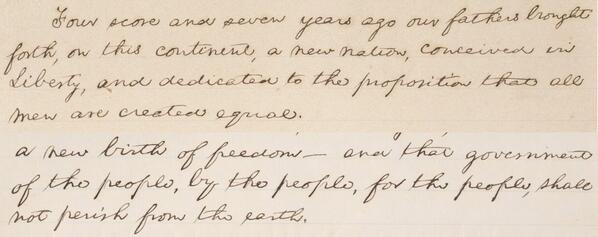 Four score and seven years ago our fathers brought
forth, on this continent, a new nation, conceived in
Liberty, and dedicated to the proposition that all
men are created equal.
a new birth of freedom — and that government
of the people, by the people, for the people, shall
not perish from the earth.